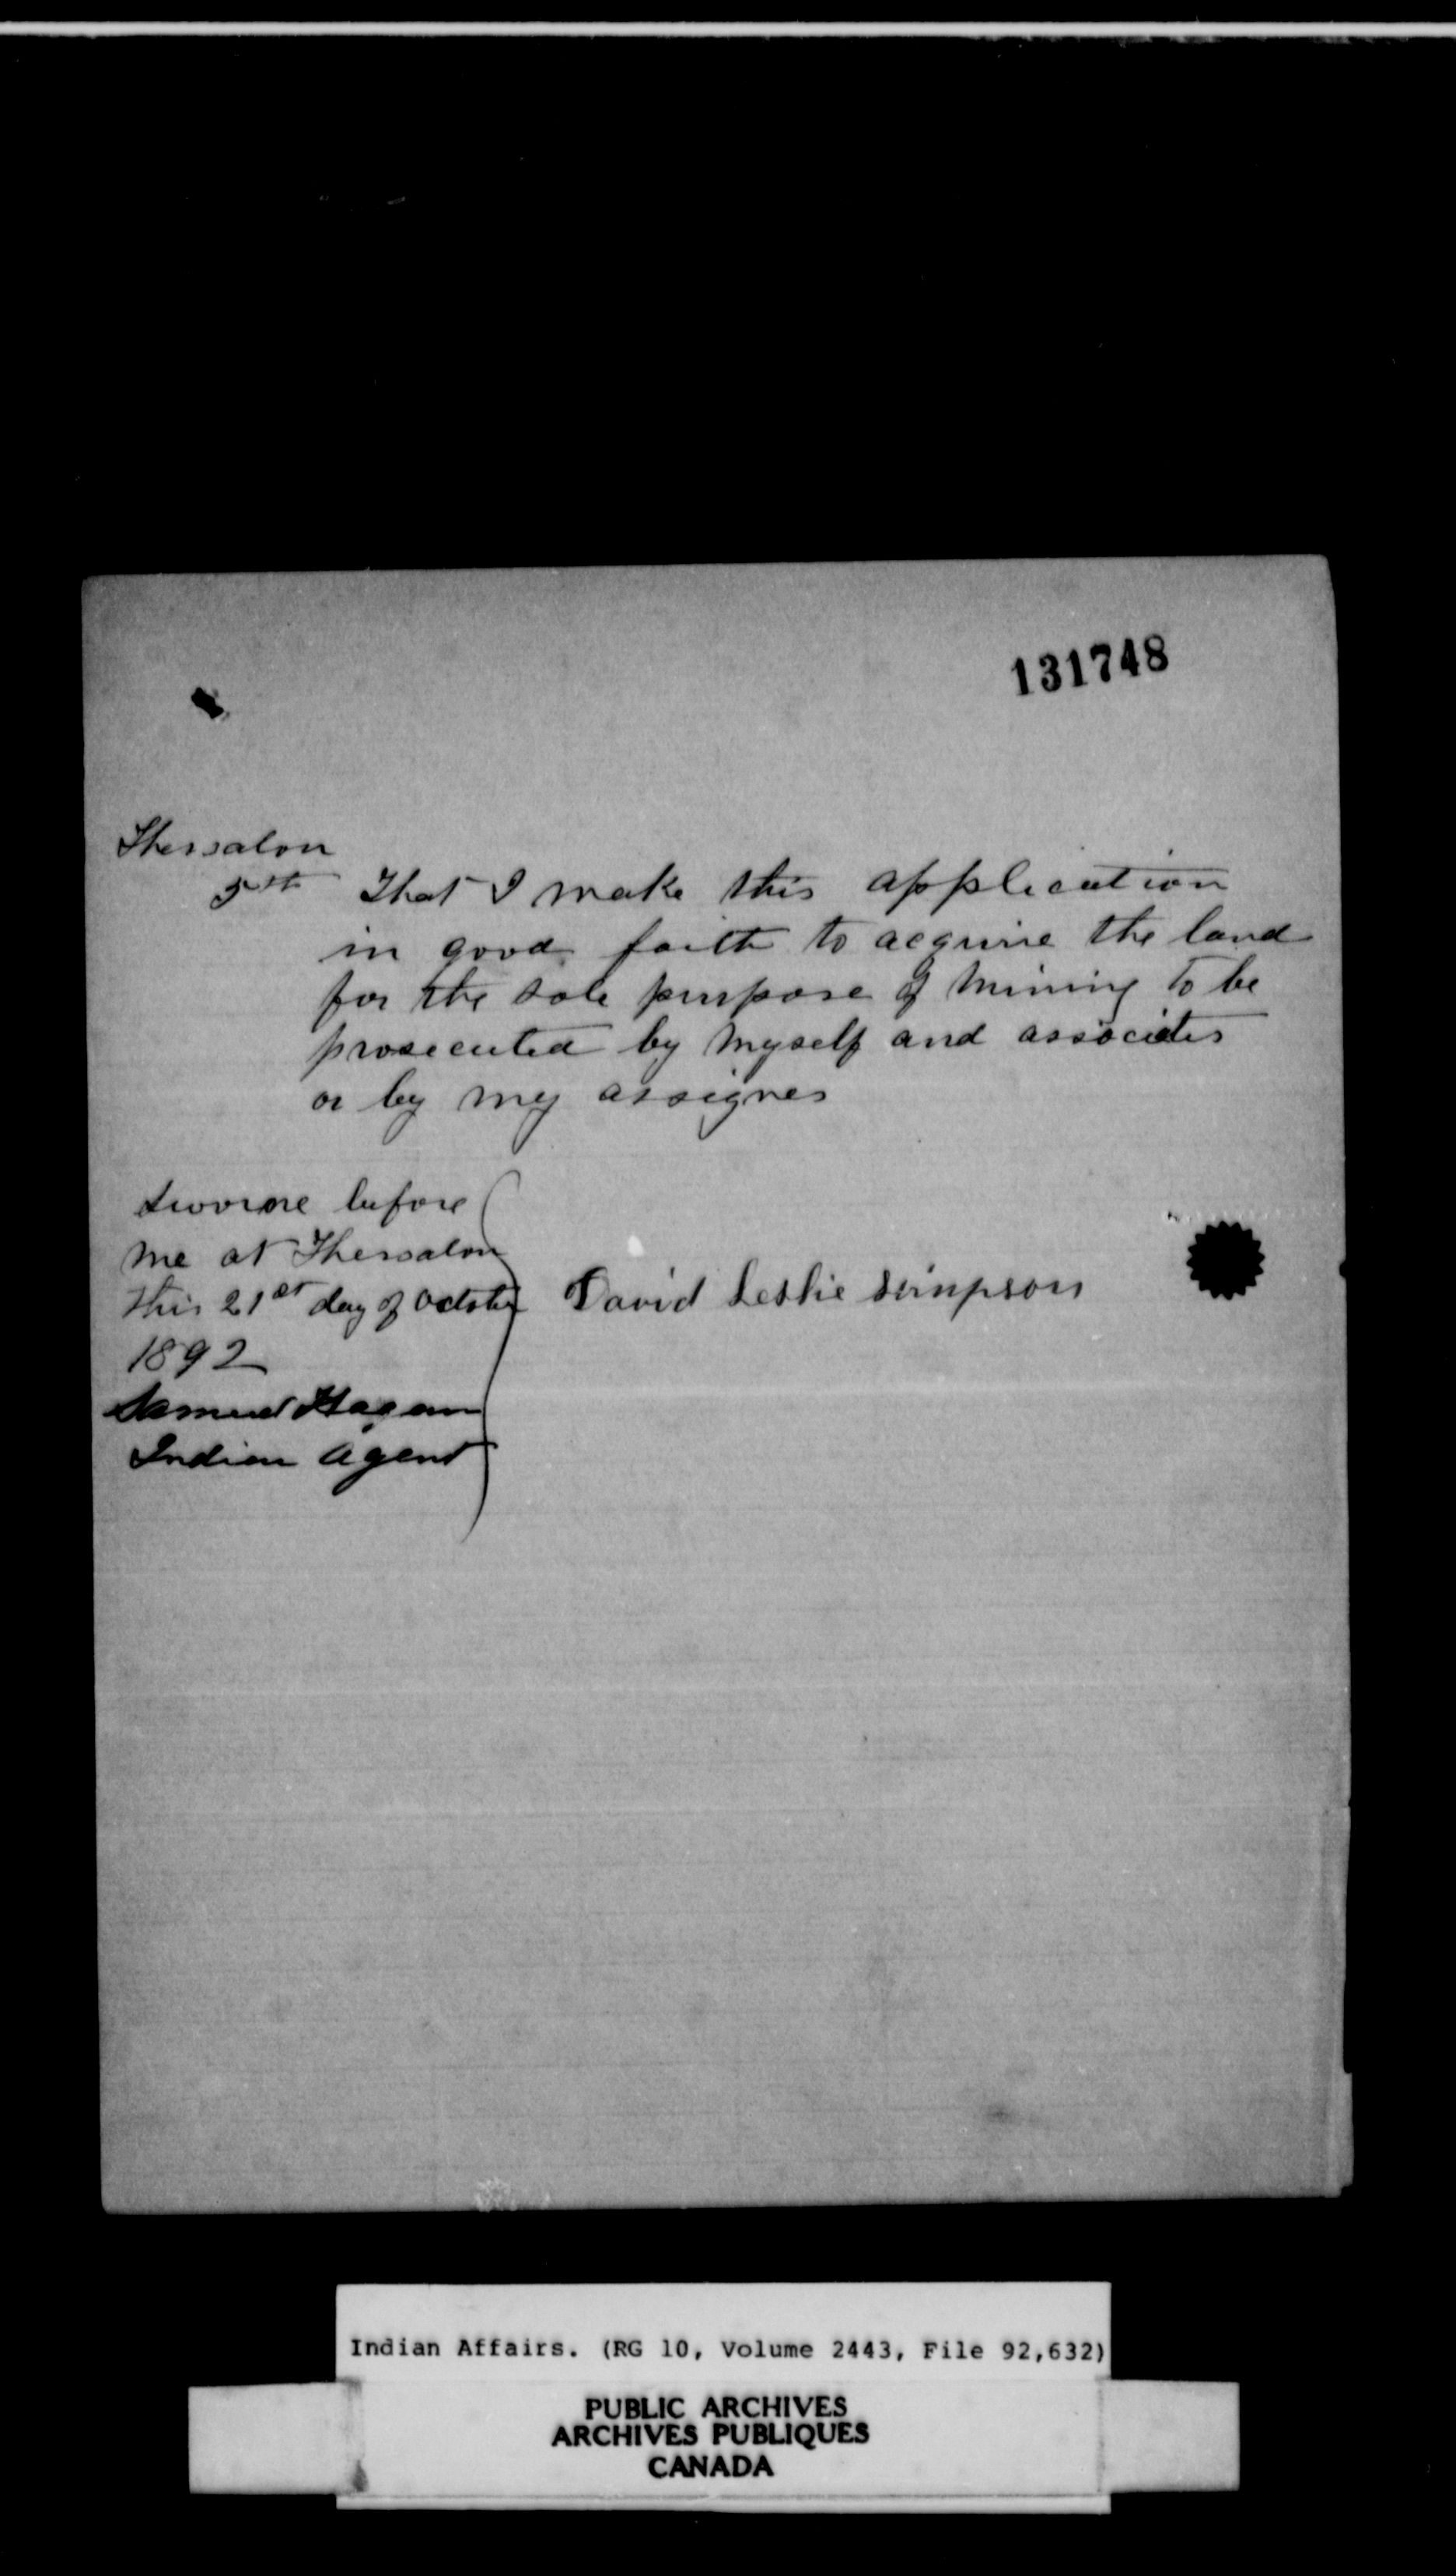 131748
Thessalon
5th That I make this application
in good faith to acquire the land
for the sole purpose of mining to be
prosecuted by myself and associates
or by my assignes
Sworne before
me at Thessalon
this 21st day of October David Leslie Simpson
1892
Samuel Hagan
Indian Agent
Indian Affairs. (RG 10, Volume 2443, File 92,632)
PUBLIC ARCHIVES
ARCHIVES PUBLIQUES
CANADA